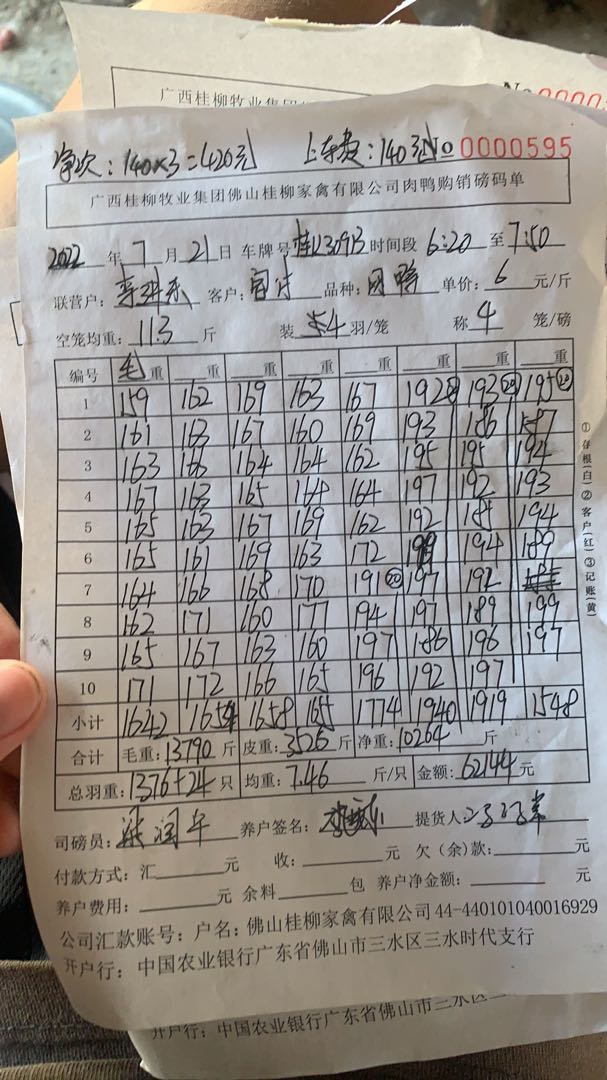 广西桂柳牧业集团
140×3=420元 上车费:140元 No 0000595
广西桂柳牧业集团佛山桂柳家禽有限公司肉鸭购销磅码单
2022 年 7 月 21 日 车牌号 时间段 6:20 至 7:50
联营户: 客户: 品种: 肉鸭 单价: 6 元/斤
空笼均重: 11.3 斤 装 4 羽/笼 称 4 笼/磅
编号 毛重 重 重 重 重 重 重 重
1 159 162 169 163 167 192 193 195
2 161 163 167 160 169 193 186 187
3 163 166 164 164 162 195 195 194
4 167 163 165 164 164 197 192 193
5 165 163 167 169 162 192 185 194
6 165 161 169 163 172 199 194 189
7 164 166 168 170 191 ⑳ 197 192
8 162 171 160 177 194 197 189 199
9 165 167 163 160 197 186 196 197
10 171 172 166 165 196 192 197
小计 1642 1654 1658 165 1774 1940 1919 1548
合计 毛重: 13790 斤 皮重: 3526 斤 净重: 10264 斤
总羽重: 1376+24 只 均重: 7.46 斤/只 金额: 62144 元
司磅员: 养户签名: 提货人
付款方式: 汇 元 收: 元 欠(余)款: 元
养户费用: 元 余料 包 养户净金额: 元
公司汇款账号: 户名: 佛山桂柳家禽有限公司 44-440101040016929
开户行: 中国农业银行广东省佛山市三水区三水时代支行
①存根(白)②客户(红)③记账(黄)
开户行: 中国农业银行广东省佛山市三水区三